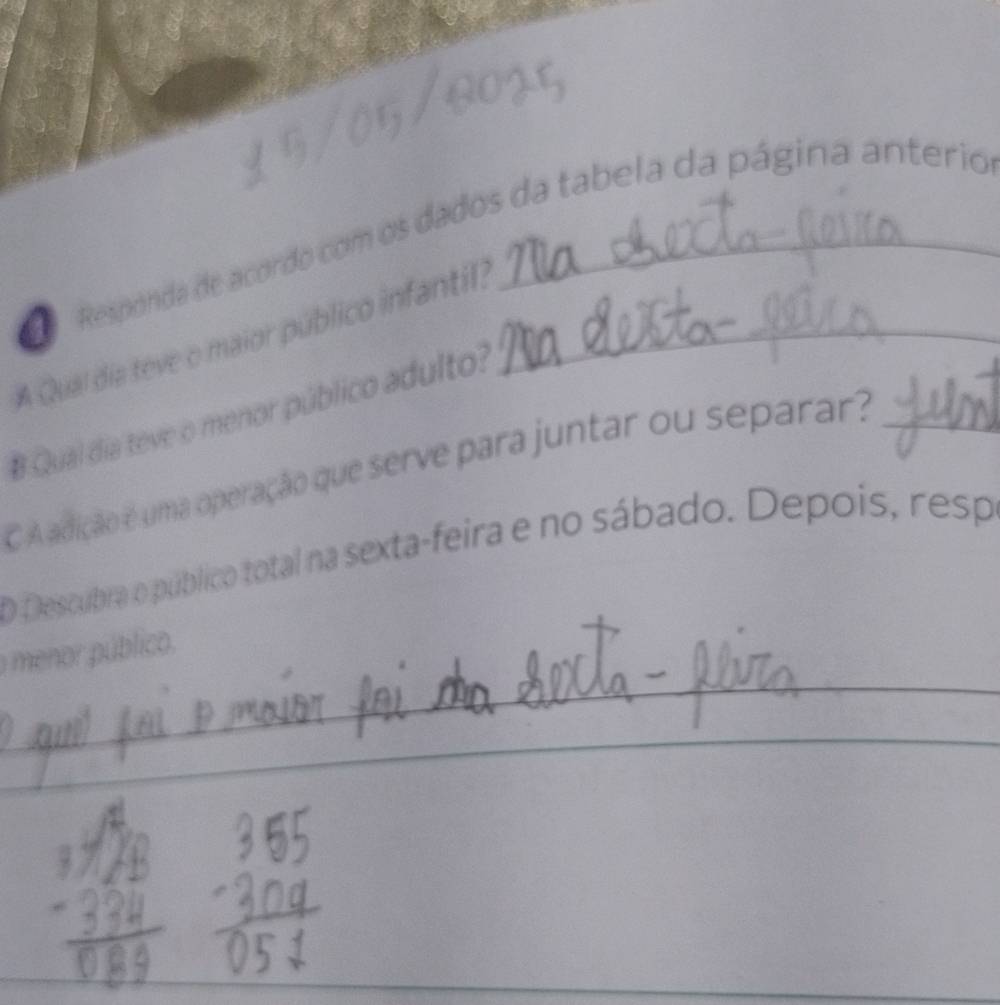 15/05/2025
1 Responda de acordo com os dados da tabela da página anterior
A Qual dia teve o maior público infantil? Na sexta-feira
B Qual dia teve o menor público adulto? Na sexta-feira
C A adição é uma operação que serve para juntar ou separar? junt
D Descubra o público total na sexta-feira e no sábado. Depois, resp
o menor público.
O que foi o maior foi na sexta-feira
355
-334 -309
089 051